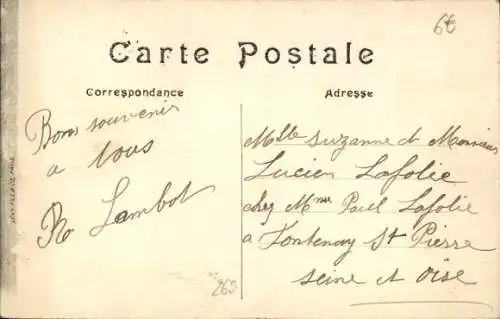 6€
Carte Postale
Correspondance
Adresse
Bons souvenirs
a tous
R Lambot
269
Mlle Suzanne et Monsieur
Lucien Lafolie
chez Mme Paul Lafolie
a Fontenay St Pierre
Seine et Oise